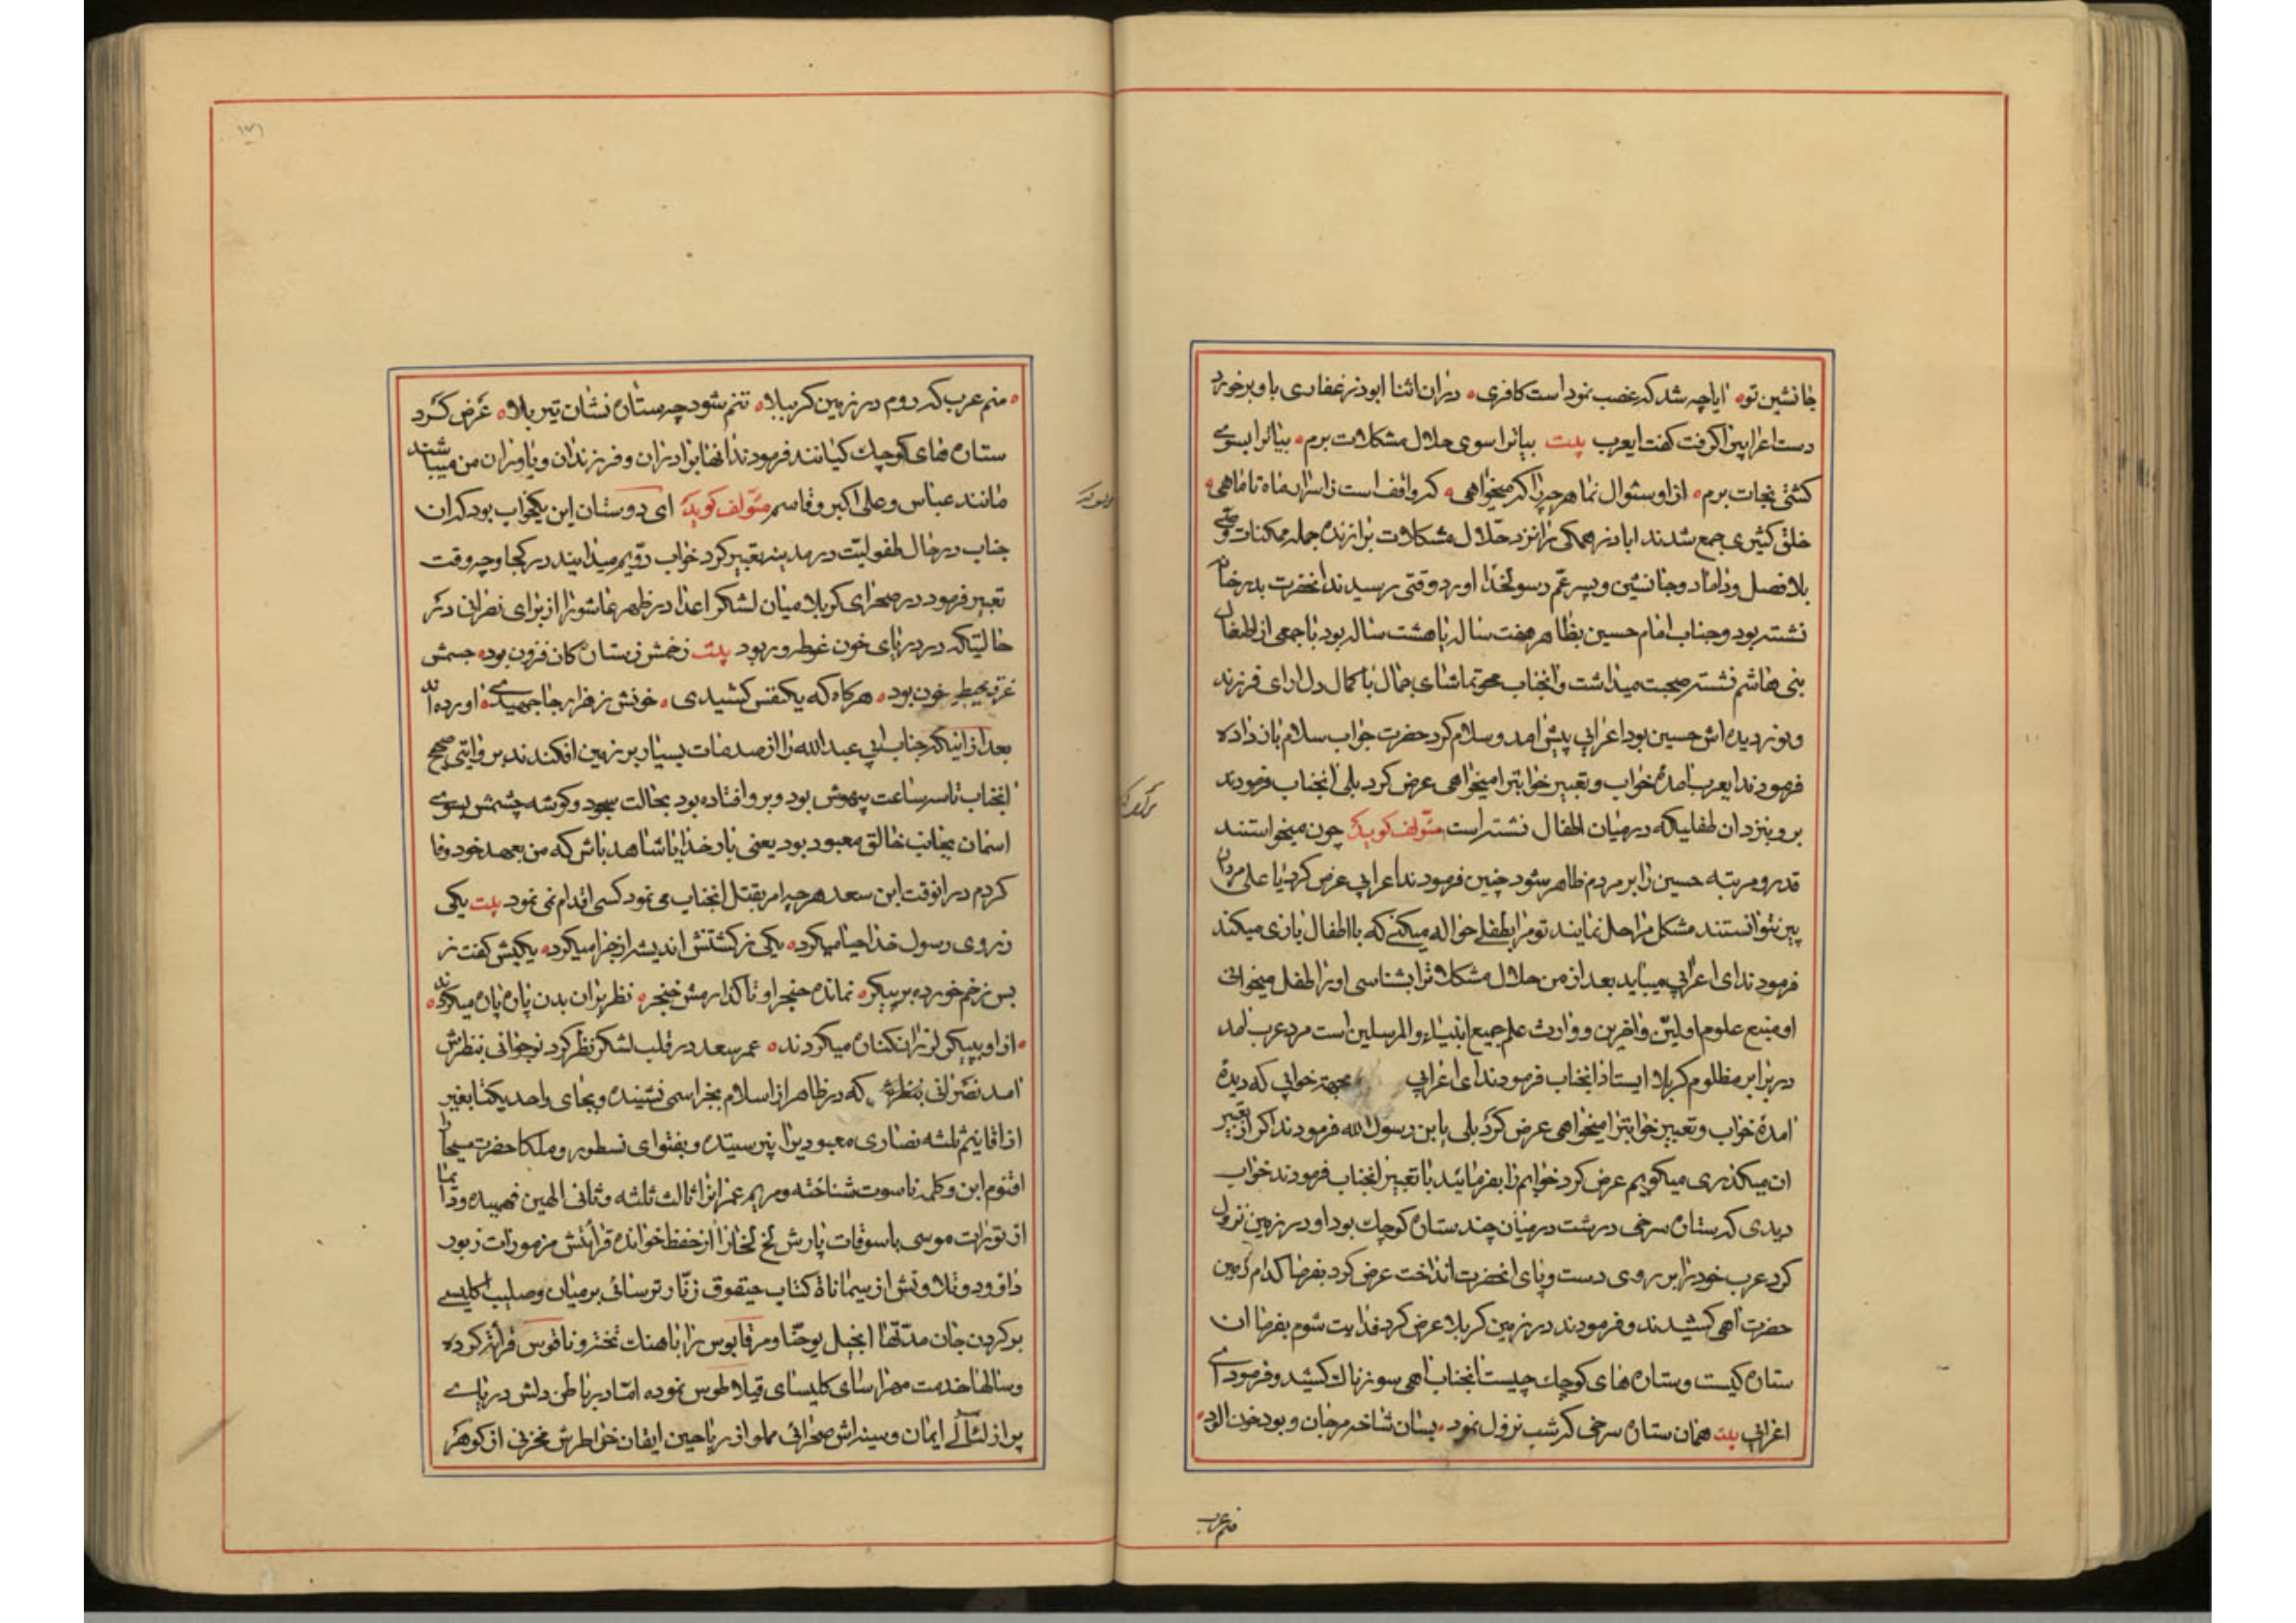 جانشین تو ایا چه شد که غصب نمود است کافری دران اثنا ابوذر غفاری با و برخورد
دست اعرابیرا گرفت گفت ایعرب بیت بیا ترا سوی حلال مشکلات برم بیا ترا بسوی
کشتی نجات برم ازاو سئوال نما هرچه را که میخواهی که واقف است زاسرار ماه تا ماهی
خلق کثیری جمع شدند اباذر همگی را نزد حلال مشکلات برازنده جمله ممکنات وصی
بلا فصل و داماد و جانشین و پسر عم رسولخدا اورد وقتی رسیدند انحضرت بدر خانه
نشسته بود و جناب امام حسین بظاهر هفت ساله یا هشت ساله بود با جمعی از اطفال
بنی هاشم نشسته صحبت میداشت و انجناب محو تماشای جمال با کمال دل ارای فرزند
و نور دیده اش حسین بود اعرابی پیش امد و سلام کرد حضرت جواب سلام باز داده
فرمودند ایعرب امدهٔ خواب و تعبیر خوابترا میخواهی عرض کرد بلی انجناب فرمودند
برو بنزد ان طفلیکه در میان اطفال نشسته است مئولف کوید چون میخواستند
قدر و مرتبه حسین را بر مردم ظاهر شود چنین فرمودند اعرابی عرض کرد یا علی مردان
پیر نتوانستند مشکل مرا حل نمایند تو مرا بطفلی حواله میکنی که با اطفال بازی میکند
فرمودند ای اعرابی میباید بعد از من حلال مشکلاترا بشناسی اورا طفل میخوانی
او منبع علوم اولین و اخرین و وارث علم جمیع انبیاء و المرسلین است مرد عرب امد
در برابر مظلوم کربلا ایستاد انجناب فرمودند ای اعرابی بجهته خوابی که دیدهٔ
امدهٔ خواب و تعبیر خوابترا میخواهی عرض کرد بلی یابن رسول الله فرمودند اگر از تعبیر
ان میگذری میگویم عرض کرد خوابم را بفرمائید با تعبیر انجناب فرمودند خواب
دیدی که ستاره سرخی درشت در میان چند ستاره کوچک بود او در زمین نزول
کرد عرب خود را بر روی دست و پای انحضرت انداخت عرض کرد بفرما کدام زمین
حضرت اهی کشیدند و فرمودند در زمین کربلا عرض کرد فدایت شوم بفرما ان
ستاره کیست و ستاره های کوچک چیست انجناب اهی سوزناک کشید و فرمود ای
اعرابی بیت همان ستاره سرخی که شب نزول نمود بسان شاخه مرجان و بود خون الود
منم عرب
منم عرب که روم در زمین کرببلا تنم شود چه ستاره نشان تیر بلا عرض کرد
ستاره های کوچک کیانند فرمودند انها برادران و فرزندان و یاوران من میباشند
مانند عباس و علی اکبر و قاسم مئولف کوید ای دوستان این یکخواب بود که ان
جناب در حال طفولیت در مدینه تعبیر کرد خواب دویم میدانید در کجا و چه وقت
تعبیر فرمود در صحرای کربلا میان لشکر اعدا در ظهر عاشورا از برای نصرانی در
حالتیکه در دریای خون غوطه ور بود بیت زخمش زستاره کان فزون بود جسمش
غرقه محیط خون بود هرکاه که یکنفس کشیدی خونش ز هزار جا جهیدی اورده اند
بعد از اینکه جناب ابی عبدالله را از صدمات بسیار بر زمین افکندند بروایتی صحیح
انجناب تا سه ساعت بیهوش بود و برو افتاده بود بحالت سجود و کوشه چشمش بسوی
اسمان بجانب خالق معبود بود یعنی بار خدایا شاهد باش که من بعهد خود وفا
کردم در انوقت ابن سعد هر چه امر بقتل انجناب می نمود کسی اقدام نمی نمود بیت یکی
ز روی رسول خدا حیا میکرد یکی ز کشتنش اندیشه از جزا میکرد یکیش گفت ز
بس زخم خورده بر پیکر نمانده حنجر او تا گذارمش خنجر نظر بران بدن پاره پاره میکردند
از او بپیکر لرزان کناره میکردند عمر سعد در قلب لشکر نظر کرد نوجوانی بنظرش
امد نصرانی که در ظاهر از اسلام بجز اسمی نشنیده و بجای واحد یکتا بغیر
از اقانیم ثلثه نصاری معبودیرا نپرستیده و بفتوای نسطور و ملکا حضرت مسیحا را
اقنوم ابن و کلمه ناسوت شناخته و مریم عمرانرا ثالث ثلثه و ثانی الهین فهمیده و دائما
از تورات موسی باسوقات پارش لخ لخارا از حفظ خوانده قرائتش مزمورات زبور
داود و تلاوتش از سیمانات کتاب حیقوق زنار ترسائی بر میان و صلیب کلیسے
بر کردن جان مدتها انجیل یوحنا و مرقابوس را باهنات نخترو ناقوس قرائتر کرده
و سالها خدمت مهراسای کلیسای قیلاطوس نموده اما در باطن دلش دریای
پر از لئالی ایمان و سینه اش صحرائی مملو از ریاحین ایقان خواطرش مخزنی از کوهر